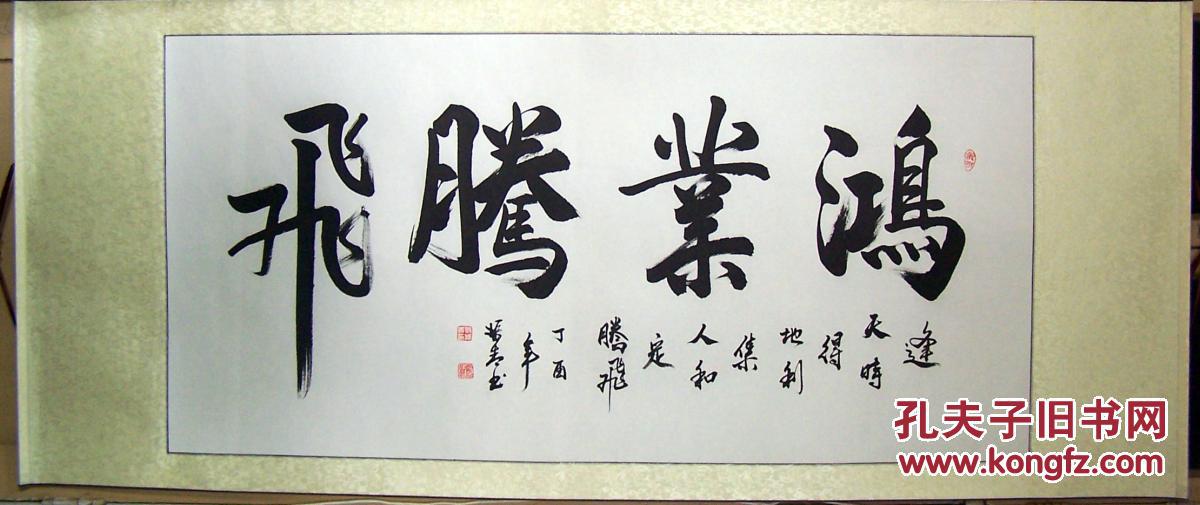 鴻業騰飛
逢
天時
得
地利
集
人和
定
騰飛
丁酉
年
书
孔夫子旧书网
www.kongfz.com